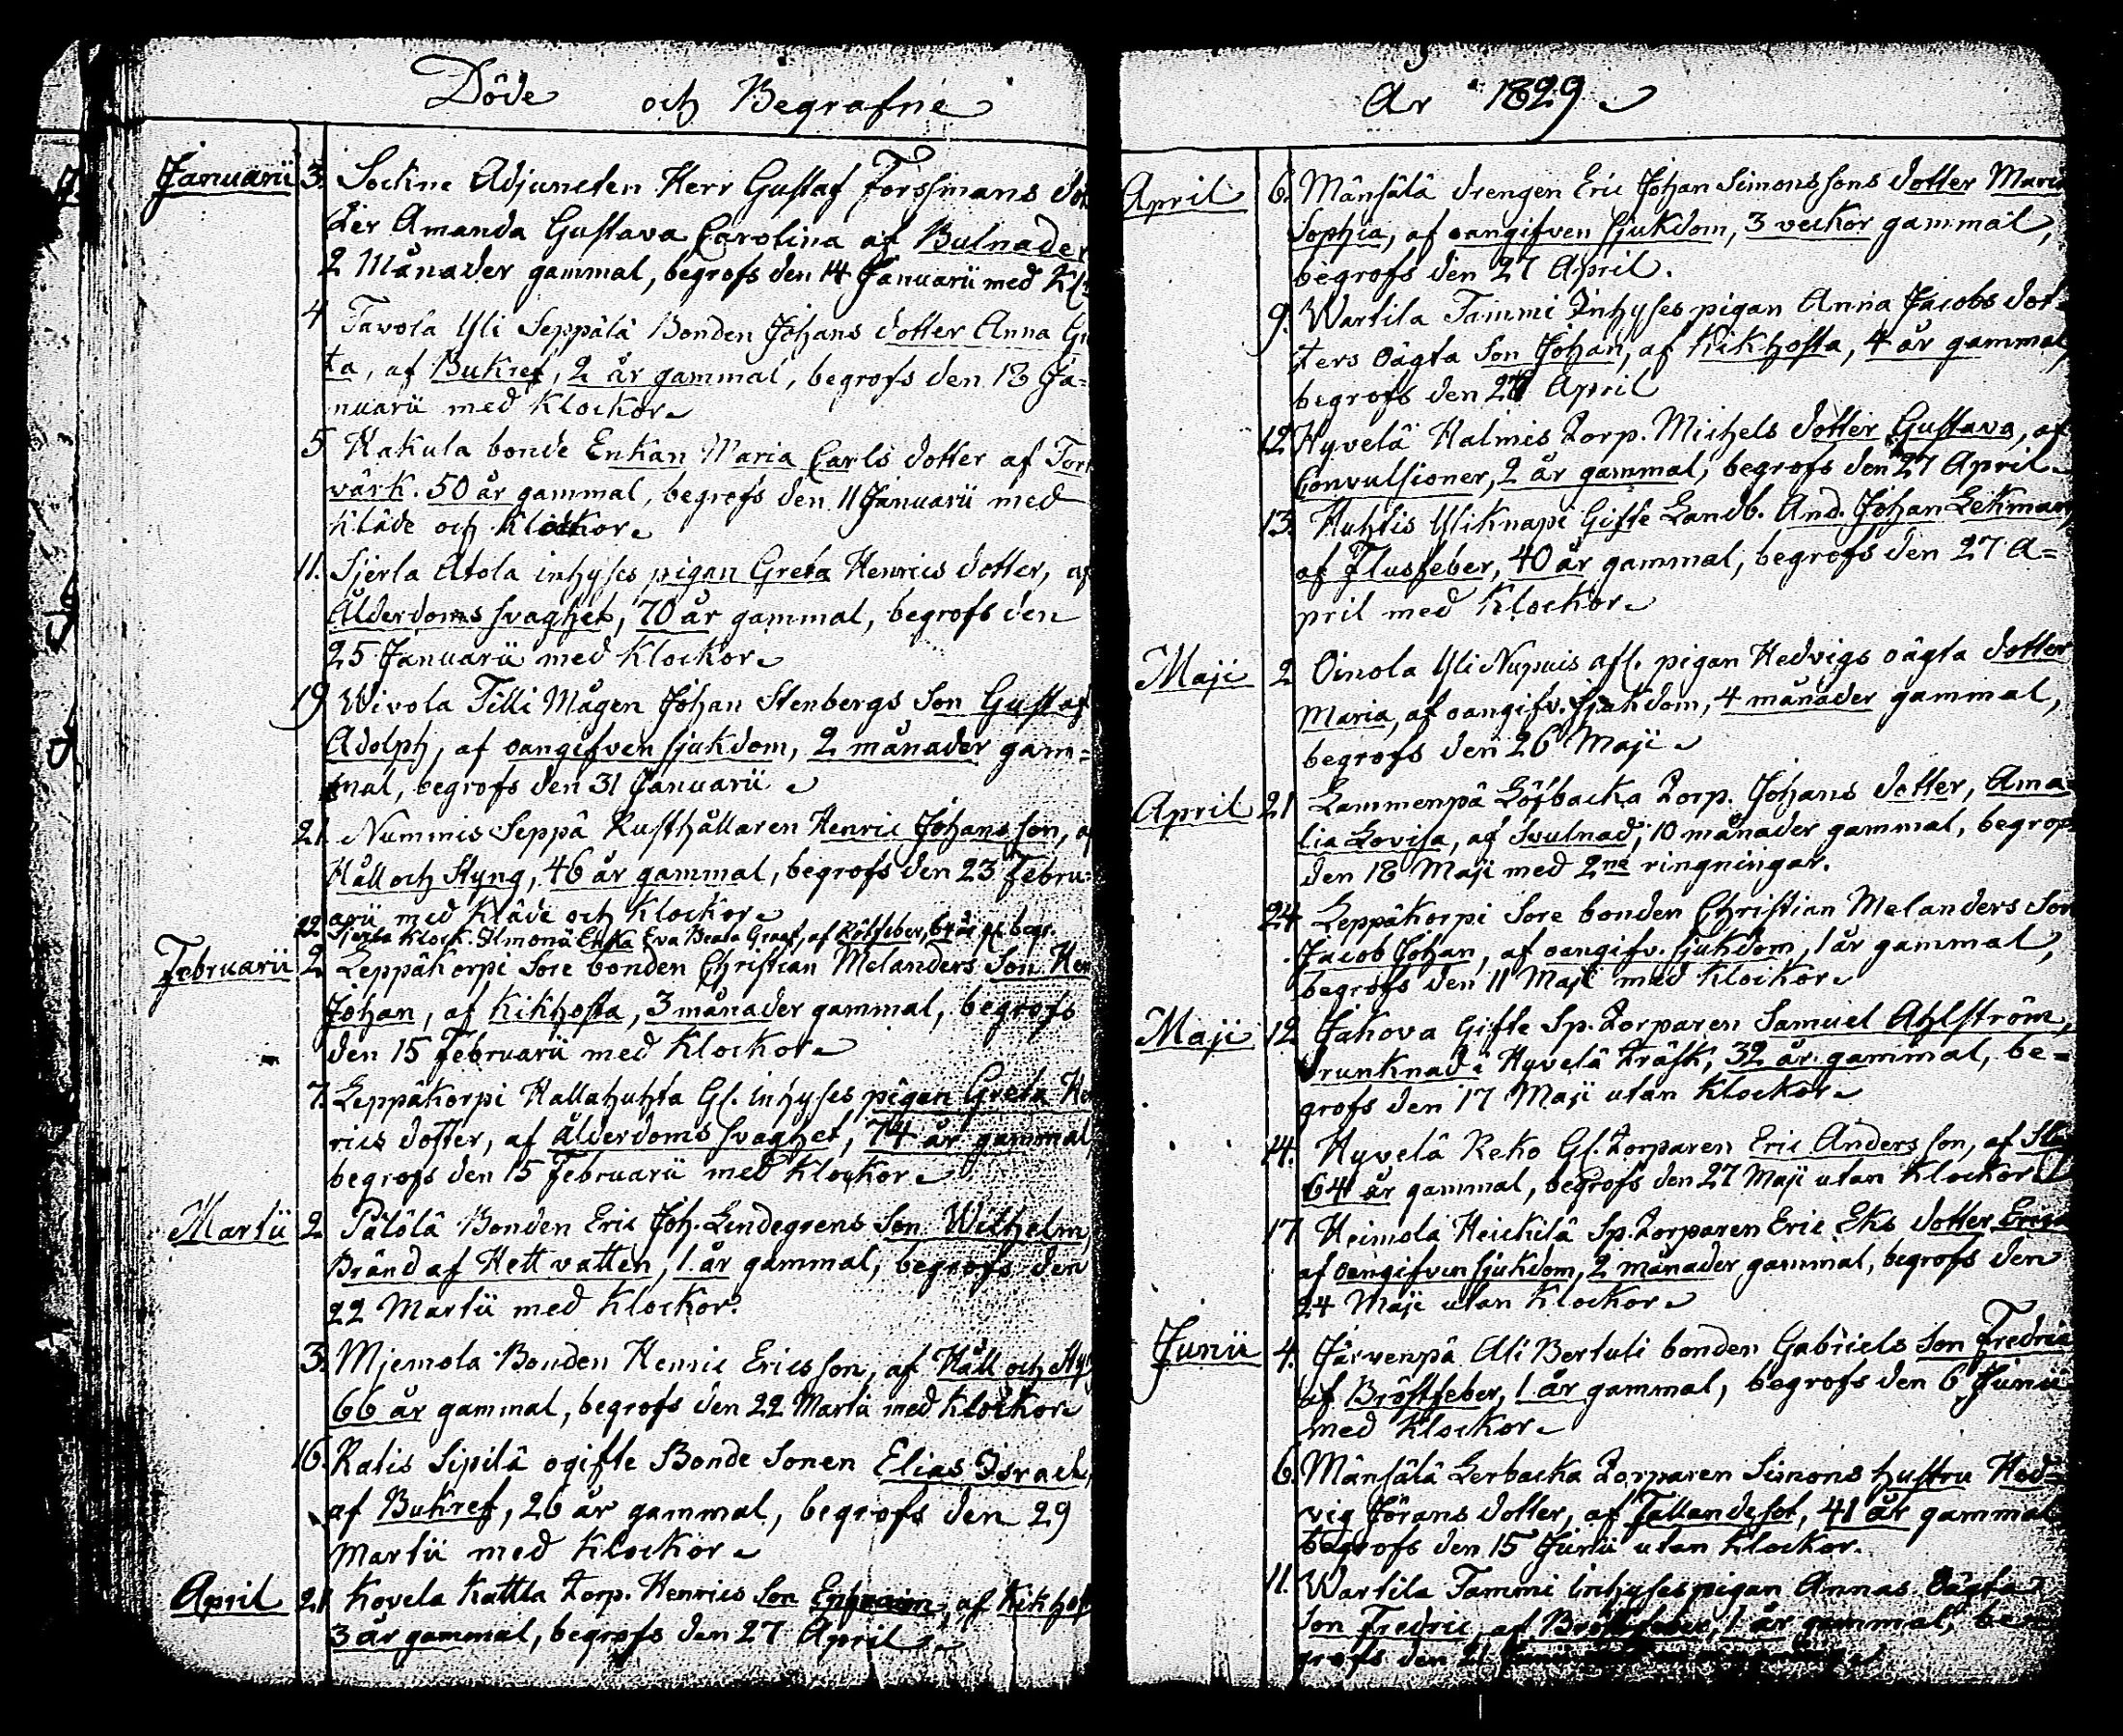 Döde och Begrafne
Januarii 3. Sockne Adjuncten Herr Gustaf Forssmans dot
ter Amanda Gustava Carolina af Bulnader
2 Månader gammal, begrofs den 14 Januarii med Kl
4 Tavola Yli Seppälä Bonden Johans dotter Anna Gu
ta, af Bukref, 2 år gammal, begrofs den 18 Ja=
nuarii med Klockor
5 Kakula bonde Enkan Maria Carls dotter af Tor
värk. 50 år gammal, begrofs den 11 Januarii med
Kläde och Klockor
11. Sjerla Atola inhyses pigan Greta Henrics dotter, af
Ålderdoms svaghet, 70 år gammal, begrofs den
25 Januarii med Klockor
19 Wivola Tilli Mågen Johan Stenbergs Son Gustaf
Adolph, af oangifven sjukdom, 2 månader gam=
mal, begrofs den 31 Januarii
21. Nummis Seppä Rusthållaren Henric Johansson, af
Håll och Styng, 46 år gammal, begrofs den 23 Febru=
arii med Kläde och Klockor
22 Sjerla Klock. Enka Eva Beata af Rötfeber, år gl. begr.
Februarii 2 Leppäkorpi Sore bonden Christian Melanders Son Hen
Johan, af Kikhosta, 3 månader gammal, begrofs
den 15 Februarii med Klockor
7. Leppäkorpi Hallahuhta Gl. inhyses pigan Greta Hen
rics dotter, af ålderdoms svaghet, 74 år gammal,
begrofs den 15 Februarii med Klockor
Martii 2 Pälölä Bonden Eric Joh. Lindegrens Son Wilhelm,
Bränd af Hett vatten, 1 år gammal, begrofs den
22 Martii med Klockor.
3. Mjemola Bonden Henric Ericsson, af Håll och Sty
66 år gammal, begrofs den 22 Martii med Klockor
16. Ratis Sipilä ogifte Bonde Sonen Elias Israel,
af Bukref, 26 år gammal, begrofs den 29
Martii med Klockor
April 21 Kovela Kattla Torp. Henrics Son Ephraim, af Kikhos
3 år gammal, begrofs den 27 April
År 1829
April 6. Mänsälä drengen Eric Johan Simonssons dotter Maria
Sophia, af oangifven sjukdom, 3 veckor gammal,
begrofs den 27 April.
9. Wartila Tammi Inhyses pigan Anna Jacobs dot=
ters oägta Son Johan, af Kikhosta, 4 år gammal,
begrofs den April
12 Hyvelä Halmis Torp. Michels dotter Gustava, af
Convulsioner, 2 år gammal, begrofs den 27 April
13. Huhtis Yliknapi Gifte Landb. And. Johan Lekman,
af Flusfeber, 40 år gammal, begrofs den 27 A=
pril med Klockor
Maji 2 Oinola Yli Nupuis afl. pigan Hedvigs oägta dotter
Maria, af oangifv. sjukdom, 4 månader gammal,
begrofs den 26 Maji
April 21 Lammenpä Löfbacka Torp. Johans dotter, Ama=
lia Lovisa, af Svulnad, 10 månader gammal, begrofs
den 18 Maji med 2ne ringningar.
24 Leppäkorpi Sore bonden Christian Melanders Son
Jacob Johan, af oangifv. sjukdom, 1 år gammal,
begrofs den 11 Maji med Klockor
Maji 12 Jakova Gifte Sp. Torparen Samuel Ahlström,
drunknad i Hyvelä Träsk, 32 år gammal, be=
grofs den 17 Maji utan Klockor
14. Hyvelä Reko Gl. Torparen Eric Andersson, af
64 år gammal, begrofs den 27 Maji utan Klockor
17 Heimola Heickilä Sp. Torparen Eric Eks dotter Erica
af oangifven sjukdom, 2 månader gammal, begrofs den
24 Maji utan Klockor
Junii 4. Järvenpä Ali Bertuli bonden Gabriels Son Fredric
af Bröstfeber, 1 år gammal, begrofs den 6 Junii
med Klockor
6. Mänsälä Lerbacka Torparen Simons hustru Hed=
vig Jörans dotter, af Fallandesot, 41 år gammal
begrofs den 15 Junii utan Klockor.
11. Wartila Tammi inhyses pigan Annas Oägta
Son Fredric, af Bröstfeber, 1 år gammal, be=
grofs den 21